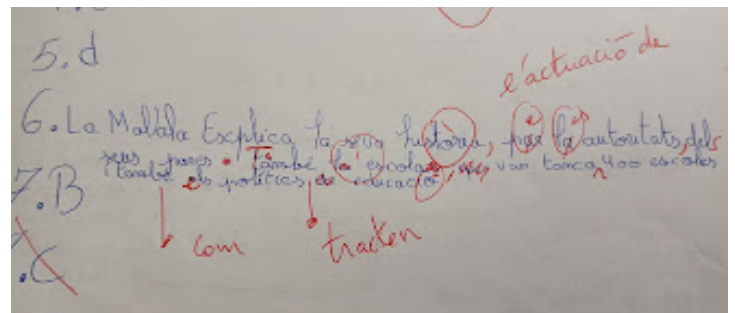 l'actuació de
5. d
6. La Malala Explica la seva història, per la autoritats, dels
seus pares. També la escola van tancar 400 escoles
també els polítics de educació
7. B
C
com
tracten